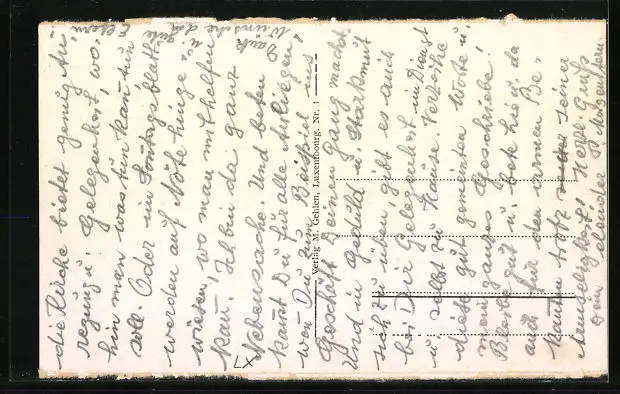 die Kirche bietet genug An-
regung u. Gelegenheit, wo,
hin man was tun kann tun
soll. Oder im Sonntagsblatt
werden auf Nöte hinge-
wiesen, wo man mithelfen
kann! Ich bin da ganz
Nebensache. Und beten
kannst Du für alle Anliegen,
wenn Du zum Beispiel ins
Geschäft Deinen Gang machst
Und in Geduld u. Starkmut
sich zu üben, gibt es auch
bei Dir Gelegenheit im Dienst
u. selbst zu Hause. Verzeihe
diese gut gemeinten Worte u.
mein ganzes Geschriebe!
Bleibe gut u. bete hie u. da
auch für den armen Be-
kannten trotz seiner
Armseligkeit! Herzl. Gruß
Dein P. Augustin
Dank
u. gute
Wünsche d.
Eltern
Verlag M. Gehlen, Luxembourg, Nr. 1